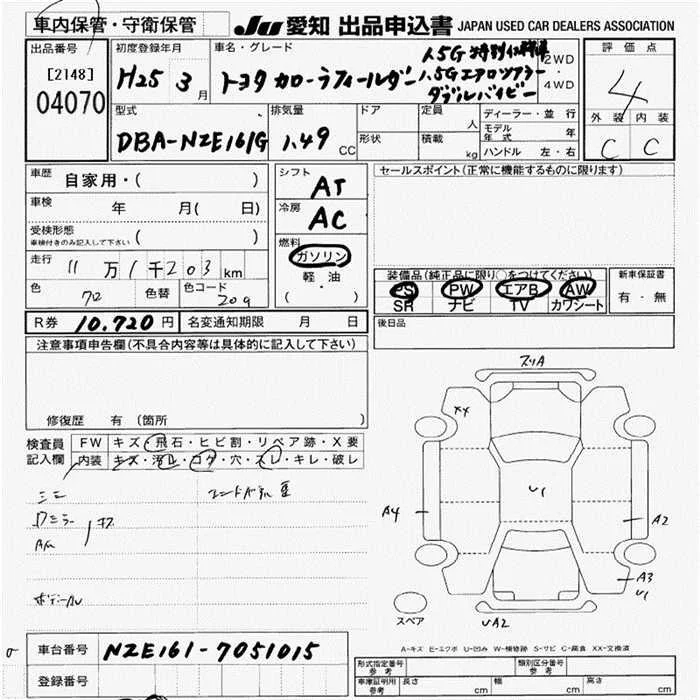 車内保管・守衛保管
JU 愛知 出品申込書 JAPAN USED CAR DEALERS ASSOCIATION
出品番号
[2148]
04070
初度登録年月
H25 3月
車名・グレード
トヨタ カローラフィールダー
1.5G 特別仕様車
1.5Gエアロツアラーダブルバイビー
2WD
4WD
評価点
4
外装 内装
C C
型式
DBA-NZE161G
排気量
1.49 CC
ドア
形状
定員 人
積載 kg
ディーラー・並行
モデル年式 年
ハンドル 左・右
車歴 自家用・( )
車検 年 月( 日)
受検形態
車検付きのみ記入して下さい ( )
走行 11万1千203km
色 70 色替 色コード 209
シフト AT
冷房 AC
燃料
ガソリン
軽・油
( )
セールスポイント(正常に機能するものに限ります)
装備品(純正品に限り○をつけてください)
PS PW エアB AW
SR ナビ TV カワシート
新車保証書
有・無
後日品
R券 10.720円 名変通知期限 月 日
注意事項申告欄(不具合内容等は具体的に記入して下さい)
修復歴 有(箇所 )
検査員記入欄
FW キズ・飛石・ヒビ割・リペア跡・X要
内装 キズ・汚れ・コゲ・穴・スレ・キレ・破レ
スリA
XX
U1
A4
A2
A3
U1
UA2
スペア
A-キズ E-エクボ U-凹み W-補修跡 S-サビ C-腐食 XX-交換済
車台番号 NZE161-7051015
登録番号
形式指定番号 参考
類別区分番号 参考
車庫証明用 参考 長さ cm 幅 cm 高さ cm